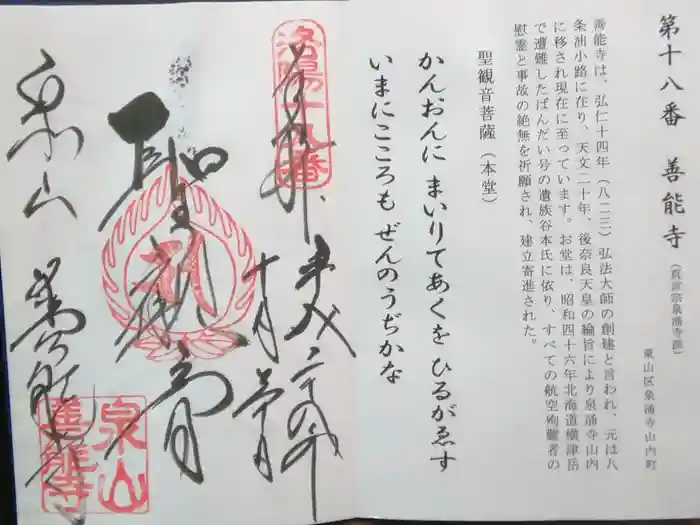 第十八番 善能寺
(真言宗泉涌寺派)
東山区泉涌寺山内町
善能寺は、弘仁十四年(八二三)弘法大師の創建と言われ、元は八
条油小路に在り、天文二十年、後奈良天皇の綸旨により泉涌寺山内
に移され現在に至っています。お堂は、昭和四十六年北海道横津岳
で遭難したばんだい号の遺族谷本氏に依り、すべての航空殉難者の
慰霊と事故の絶無を祈願され、建立寄進された。
聖観音菩薩(本堂)
かんおんに まいりてあくを ひるがゑす
いまにこころも ぜんのうぢかな
洛陽十八番
奉拝
平成二十四年
十月
聖観音
泉山
善能寺
泉山
善能寺